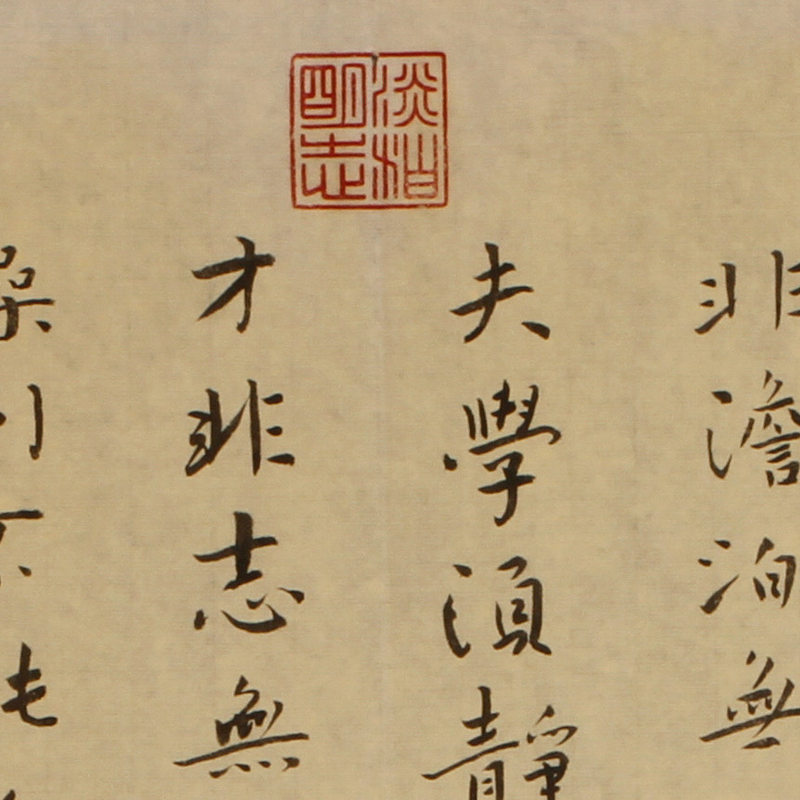 淡泊
明志
非澹泊無
夫學須靜
才非志無